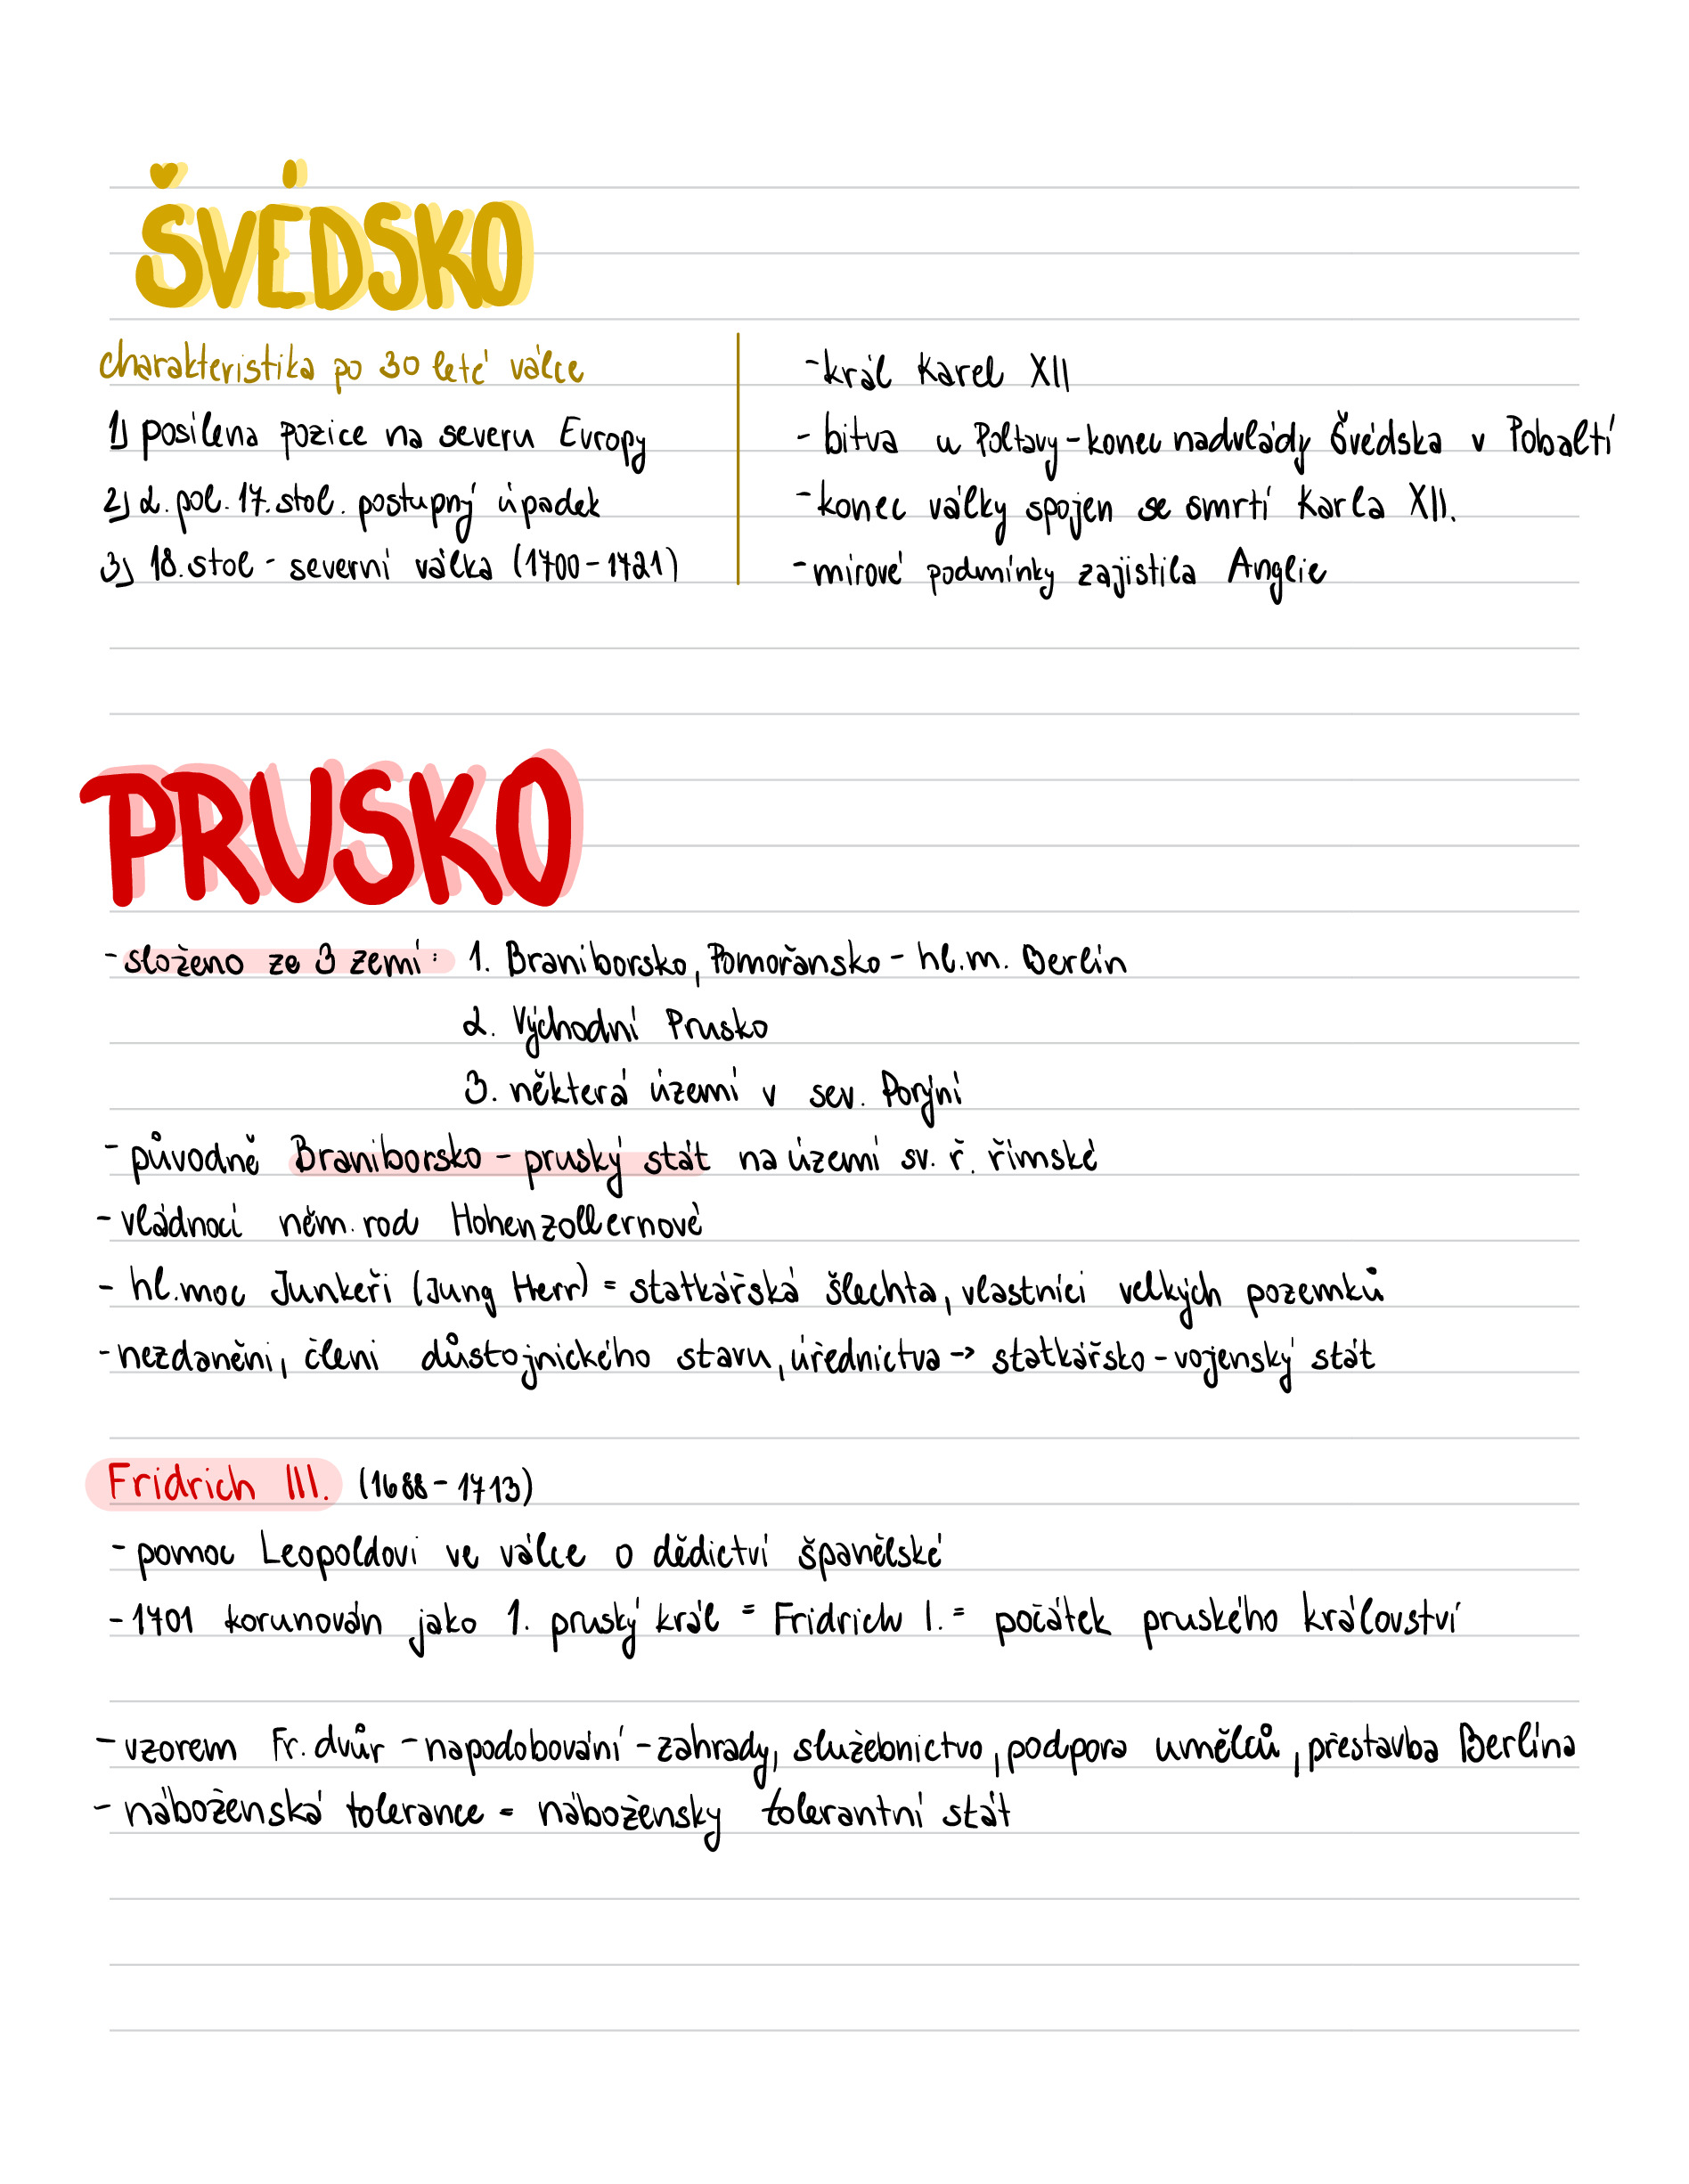 ŠVÉDSKO
charakteristika po 30 leté válce
1) posilena pozice na severu Evropy
2) 2. pol. 17. stol. postupný úpadek
3) 18. stol - severní válka (1700-1721)
- král Karel XII
- bitva u Poltavy - konec nadvlády Švédska v Pobaltí
- konec války spojen se smrtí Karla XII.
- mírové podmínky zajistila Anglie
PRUSKO
- složeno ze 3 zemí: 1. Braniborsko, Pomořansko - hl. m. Berlín
2. Východní Prusko
3. některá území v sev. Porýní
- původně Braniborsko - pruský stát na území sv. ř. římské
- vládnocí něm. rod Hohenzollernové
- hl. moc Junkeři (Jung Herr) = statkářská šlechta, vlastníci velkých pozemků
- nezdaněni, členi důstojnického stavu, úřednictva -> statkářsko - vojenský stát
Fridrich III. (1688-1713)
- pomoc Leopoldovi ve válce o dědictví španělské
- 1701 korunován jako 1. pruský král = Fridrich I. = počátek pruského království
- vzorem Fr. dvůr - napodobování - zahrady, služebnictvo, podpora umělců, přestavba Berlína
- náboženská tolerance = nábožensky tolerantní stát